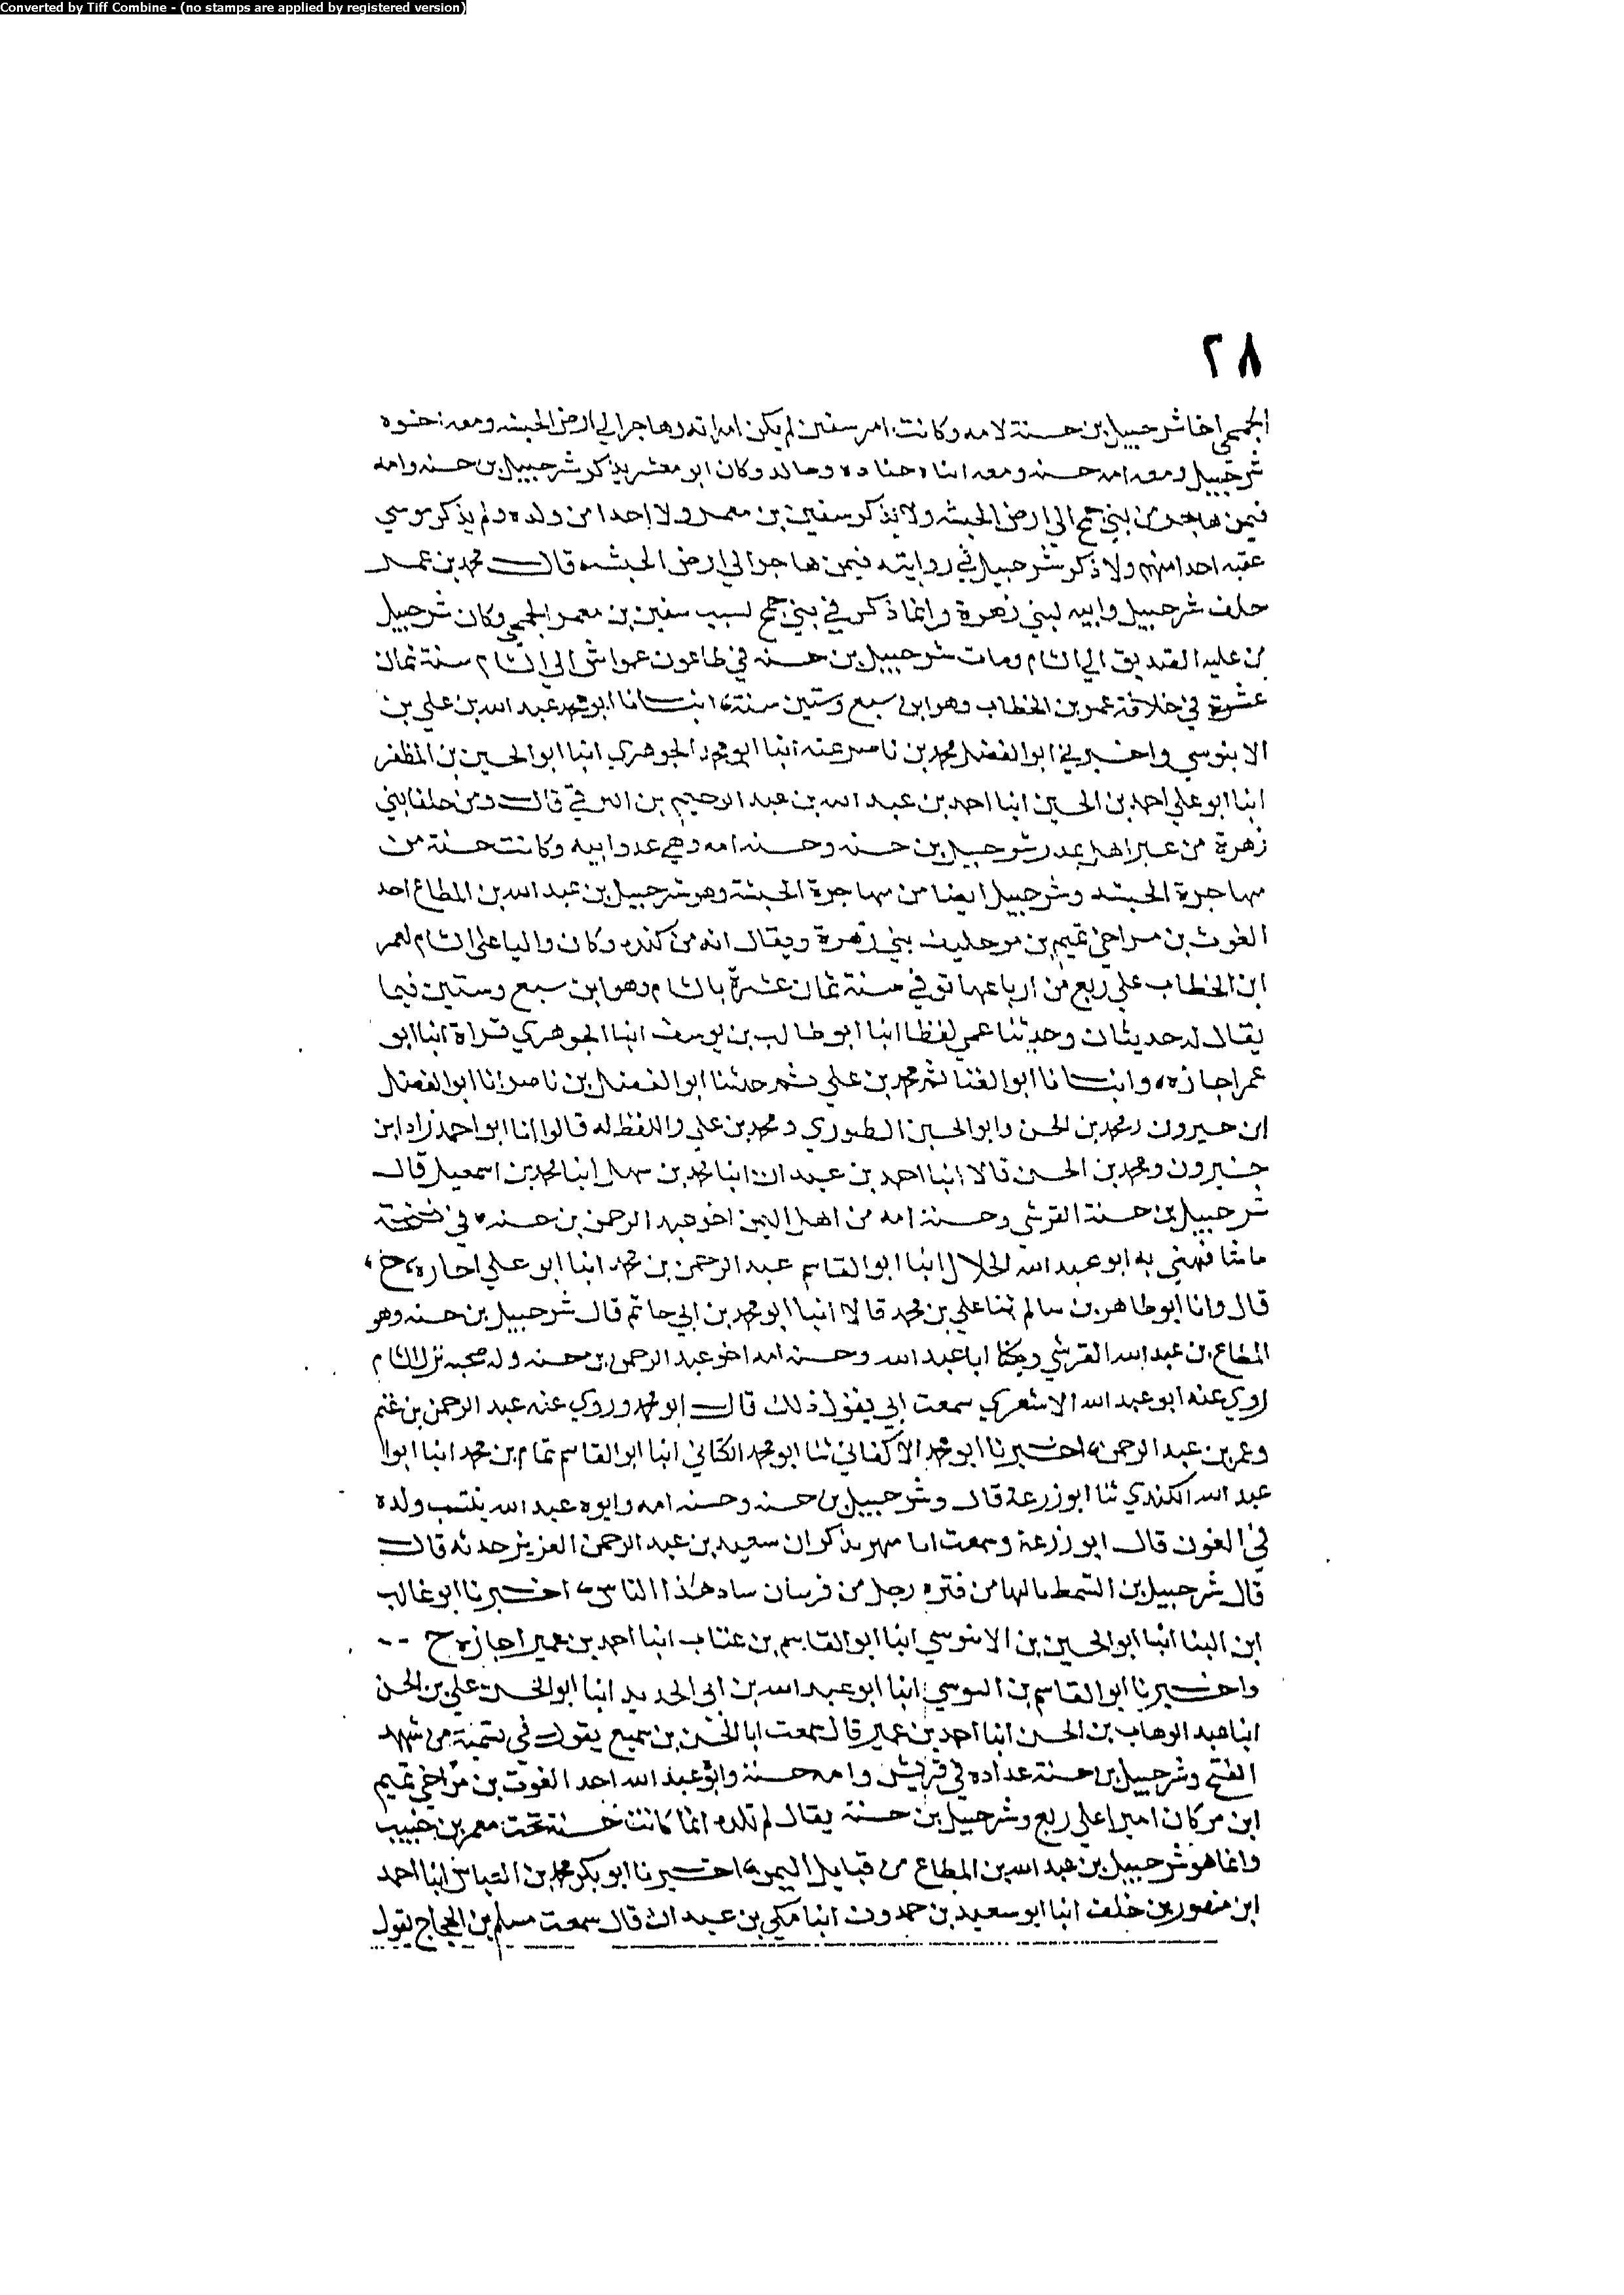 Converted by Tiff Combine - (no stamps are applied by registered version)
٢٨
الجمحي اخا شرحبيل بن حسنة لامه وكانت امر سفين لم يكن امراته وهاجر الي ارض الحبشه ومعه اخوه
شرحبيل ومعه امه حسنه ومعه ابناه جناده وخالد وكان ابو معشر يذكر شرحبيل بن حسنه وامه
فيمن هاجر من بني جمح الي ارض الحبشه ولا يذكر سفين بن معمر ولا احدا من ولده ولم يذكر موسي
عقبه احدا منهم ولا ذكر شرحبيل في روايته فيمن هاجر الي ارض الحبشه قال محمد بن عمر
حلف شرحبيل وابيه لبني زهرة وانما ذكر في بني جمح لسبب سفين بن معمر الجمحي وكان شرحبيل
من عليه الصديق الي الشام ومات شرحبيل بن حسنه في طاعون عمواش الي الشام سنة ثمان
عشرة في خلافة عمر بن الخطاب وهو ابن سبع وستين سنة انبسانا ابو محمد عبد الله بن علي بن
الابنوسي واخبرني ابو الفضل محمد بن ناصر عنه انبا ابو محمد الجوهري انبا ابو الحسين بن المظفر
انبا ابو علي احمد بن الحسين انبا احمد بن عبد الله بن عبد الرحيم بن البرقي قال ومن حلفا بني
زهرة من غير اهل بدر شرحبيل بن حسنه وحسنه امه وهي عدوا بيه وكانت حسنة من
مهاجرة الحبشه وشرحبيل ايضا من مهاجرة الحبشة وهو شرحبيل بن عبد الله بن المطاع احد
الغوث بن مر اخي تميم بن مر حليف بني زهرة ويقال انه من كنده وكان واليا علي الشام لعمر
ابن الخطاب علي ربع من ارباعها توفي سنة ثمان عشرة بالشام وهو ابن سبع وستين فيما
يقال له حديثان وحدثنا عمي لفظا انبا ابو طالب بن يوسف انبا الجوهري قراة انبا ابو
عمر اجازه وانبسانا ابو الغنائم محمد بن علي ثم حدثنا ابو الفضل بن ناصر انا ابو الفضل
ابن خيرون ومحمد بن الحسن وابو الحسين الطيوري ومحمد بن علي واللفظ له قالوا انا ابو احمد زاد ابن
خيرون ومحمد بن الحسن قالا انبا احمد بن عبدان انبا محمد بن سهل انبا محمد بن اسمعيل قال
شرحبيل بن حسنة القرشي وحسنة امه من اهل اليمن اخو عبد الرحمن بن حسنه في نسخة
ما شافهني به ابو عبد الله الخلال انبا ابو القاسم عبد الرحمن بن محمد انبا ابو علي اجازه ح
قال وانا ابو طاهر بن سالم ثنا علي بن محمد قالا انبا ابو محمد بن ابي حاتم قال شرحبيل بن حسنه وهو
المطاع بن عبد الله القرشي ويكنا ابا عبد الله وحسنه امه اخو عبد الرحمن بن حسنه وله صحبه نزل الشام
روي عنه ابو عبد الله الاشعري سمعت ابي يقول ذلك قال ابو محمد وروي عنه عبد الرحمن بن غنم
وعمر بن عبد الرحمن اخبرنا ابو محمد الاكفاني ثنا ابو محمد الكتاني انبا ابو القاسم تمام بن محمد انبا ابوا
عبد الله الكندي ثنا ابو زرعة قال وشرحبيل بن حسنه وحسنه امه وابوه عبد الله ينتسب ولده
في الغون قال ابو زرعة وسمعت ابا مسهر يذكر ان سعيد بن عبد الرحمن العزيز حدثه قال
قال شرحبيل بن السمط مالها من فتره رجل من فرسان ساد هذا الناس اخبرنا ابو غالب
ابن البنا انبا ابو الحسين بن الابنوسي انبا ابو القاسم بن عتاب انبا احمد بن عمير اجازه ح
واخبرنا ابو القاسم بن السوسي انبا ابو عبد الله بن ابي الحديد انبا ابو الحسن علي بن الحسن
انبا عبد الوهاب بن الحسن انبا احمد بن عمير قال سمعت ابا الحسن بن سميع يقول في تسمية من شهد
الفتح وشرحبيل بن حسنة عداده في قريش وامه حسنة وابو عبد الله احد الغوث بن مر اخي تميم
ابن مر كان اميرا علي ربع وشرحبيل بن حسنة يقال لم تلده انما كانت حسنة تحت معمر بن حبيب
وانما هو شرحبيل بن عبد الله بن المطاع من قبايل اليمن اخبرنا ابو بكر محمد بن العباس انبا احمد
ابن منصور بن خلف انبا ابو سعيد بن حمدون انبا مكي بن عبدان قال سمعت مسلم بن الحجاج يقول